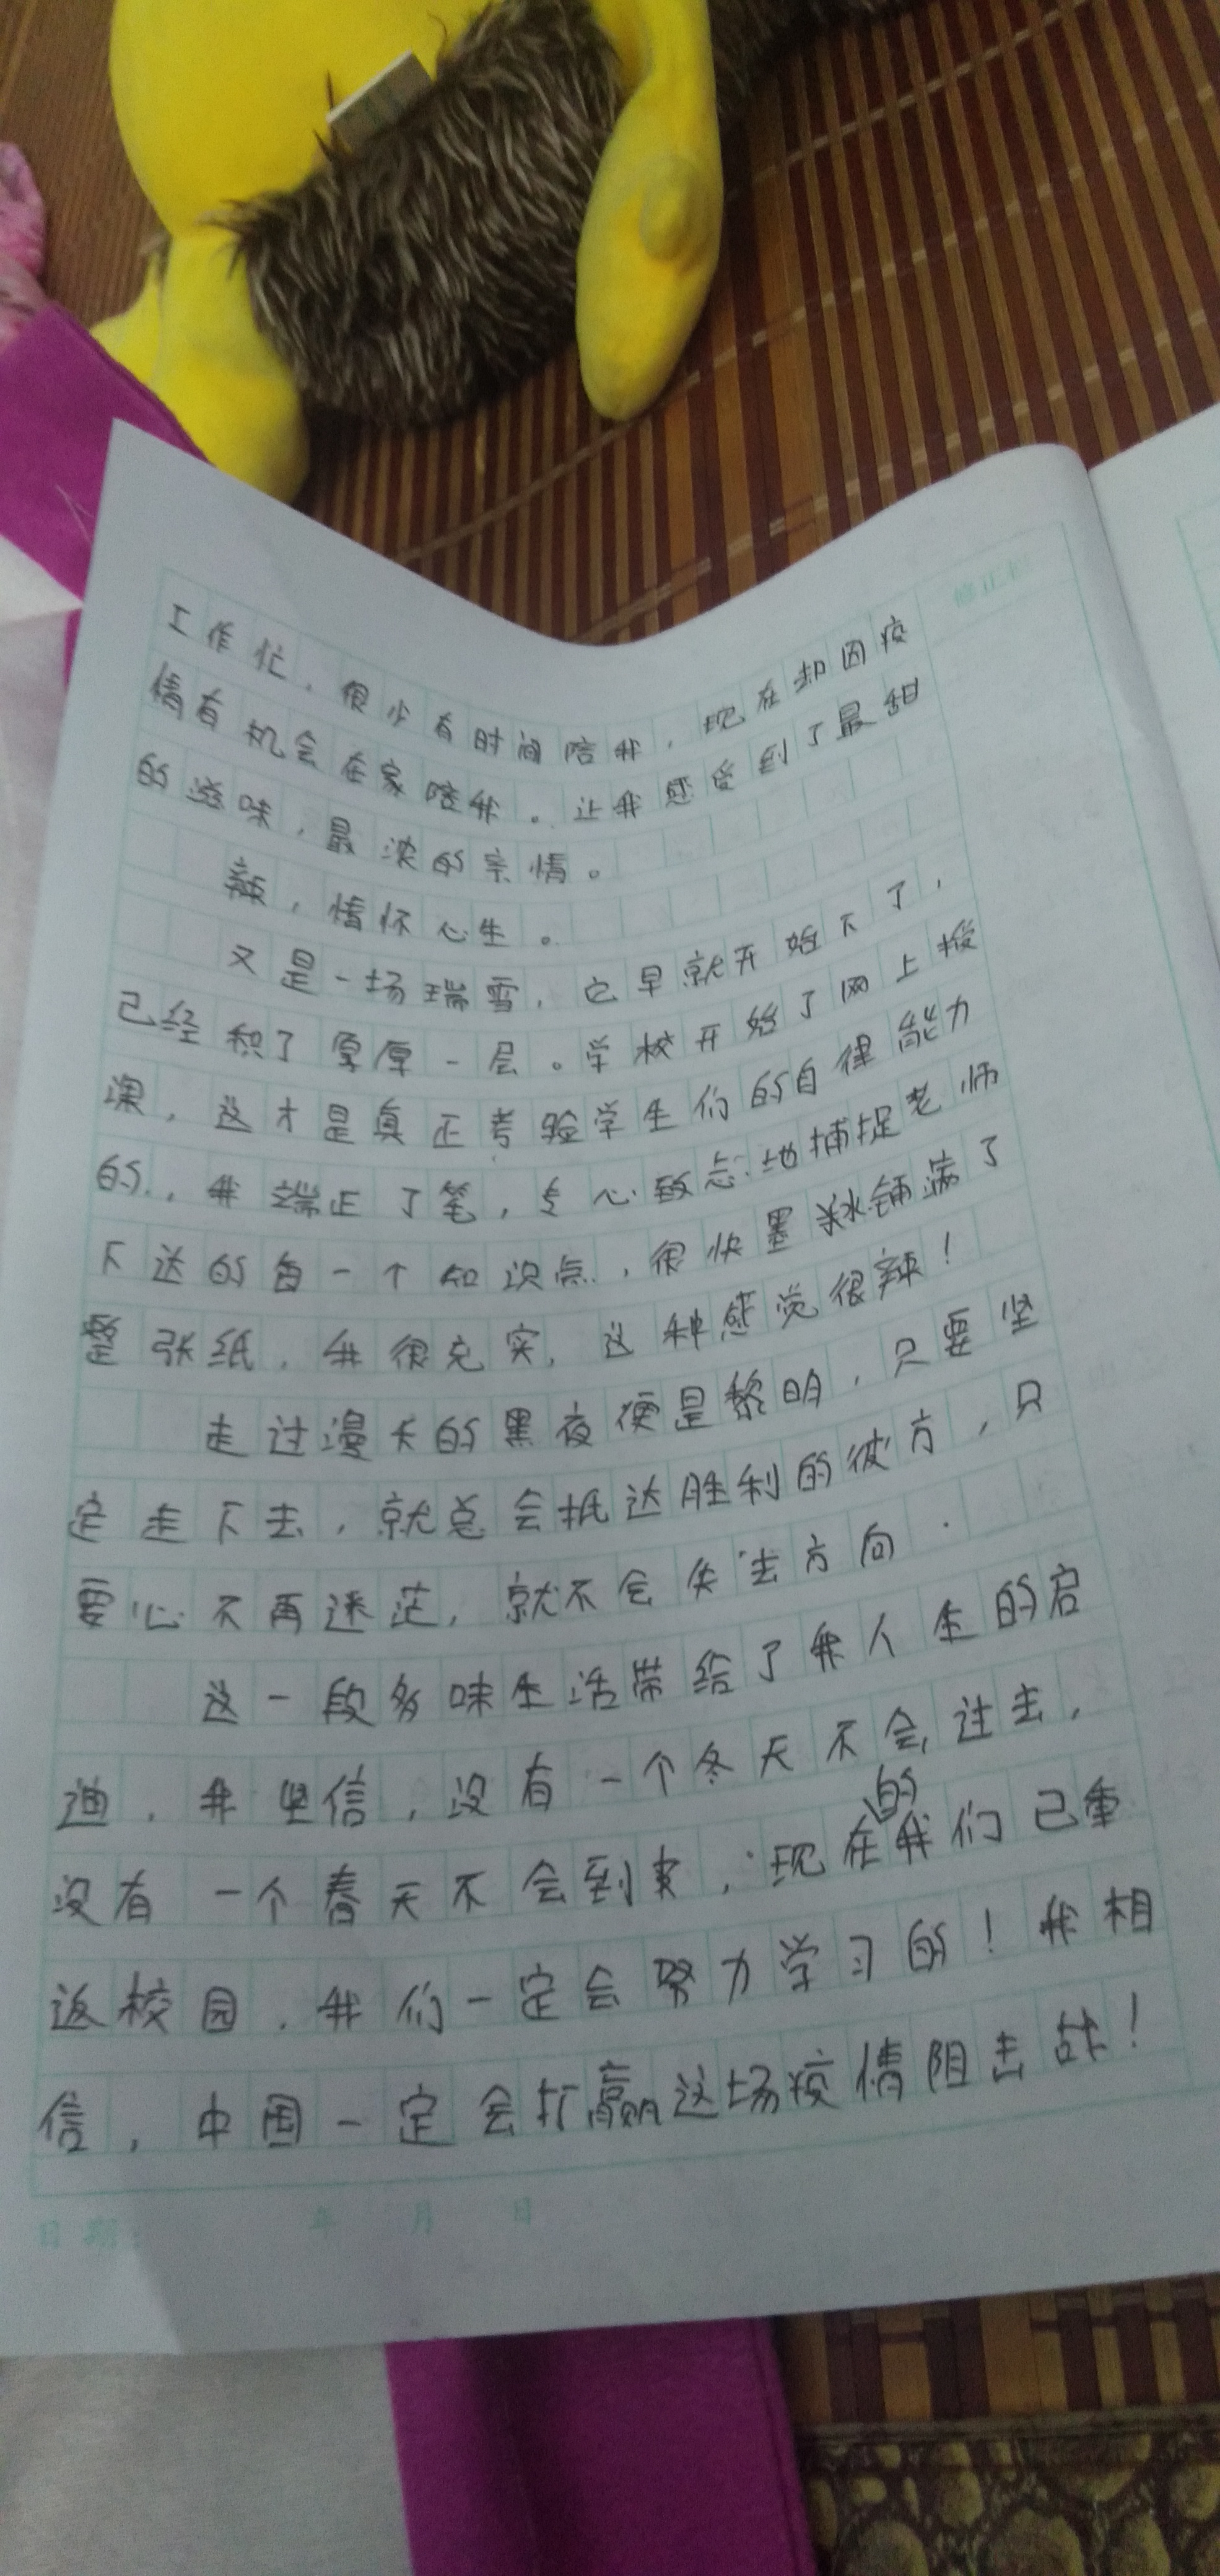 修正栏
工作忙，很少有时间陪我，现在却因疫
情有机会在家陪我。让我感受到了最甜
的滋味，最浓的亲情。
辣，情怀心生。
又是一场瑞雪，它早就开始下了，
已经积了厚厚一层。学校开始了网上授
课，这才是真正考验学生们的自律能力
的，我端正了笔，专心致志地捕捉老师
下达的每一个知识点，很快墨水铺满了
整张纸，我很充实，这种感觉很辣！
走过漫长的黑夜便是黎明，只要坚
定走下去，就总会抵达胜利的彼方，只
要心不再迷茫，就不会失去方向．
这一段多味生活带给了我人生的启
迪，我坚信，没有一个冬天不会过去，
没有一个春天不会到来，现在的我们已重
返校园，我们一定会努力学习的！我相
信，中国一定会打赢这场疫情阻击战！
日期： 年 月 日